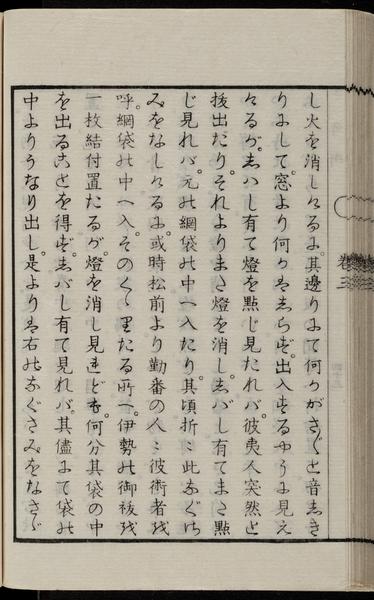 し火を消しけるに。其邊りにて何かがさ〱と音しき
りにして。窓より何かはしらず。出入するやうに見え
けるが。しバし有て燈を點じ見たれバ。彼夷人突然と
拔出たり。それよりまた燈を消し。しバし有てまた點
じ見れバ。元の綱袋の中へ入たり。其頃折ニ此なぐさ
みをなしけるに。或時松前より勤番の人ニ彼術者を
呼。綱袋の中へ入。そのくゝりたる所へ。伊勢の御祓を
一枚結付置たるが。燈を消し見れども。何分其袋の中
を出ることを得ず。しバし有て見れバ。其儘にて袋の
中よりうなり出し。是よりは右のなぐさみをなさゞ
卷三